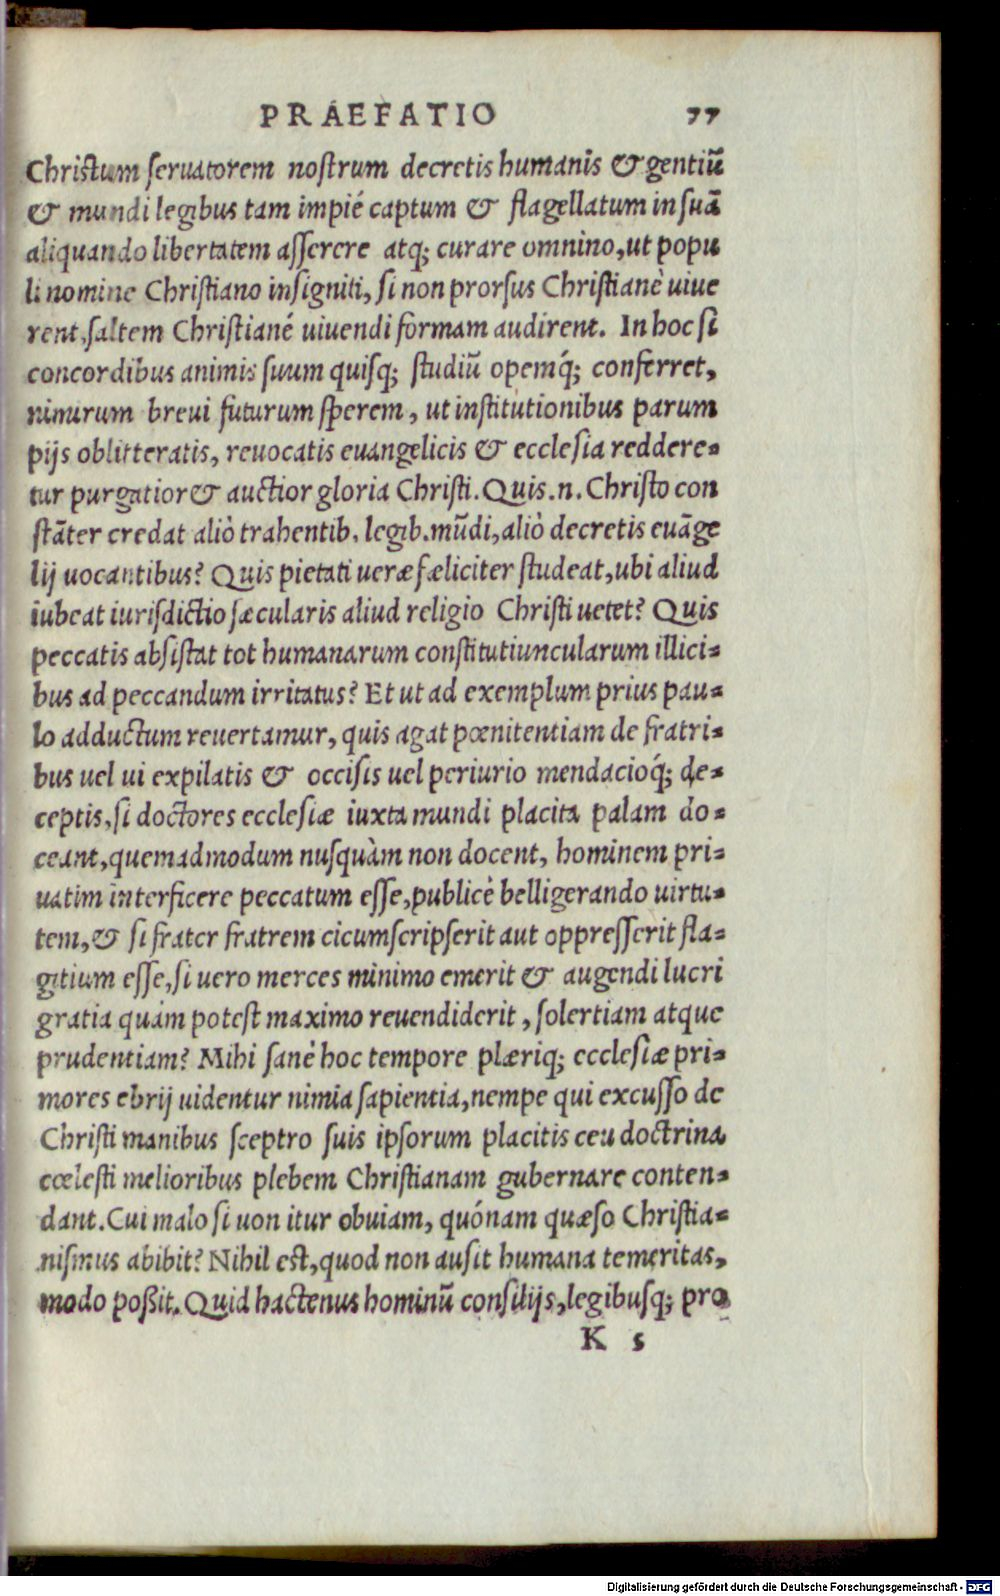 PRAEFATIO 77
Christum seruatorem nostrum decretis humanis & gentiū
& mundi legibus tam impié captum & flagellatum in suā
aliquando libertatem asserere atq; curare omnino, ut popu
li nomine Christiano insigniti, si non prorsus Christianè uiue
rent, saltem Christiané uiuendi formam audirent. In hoc si
concordibus animis suum quisq; studiū opemq́; conferret,
nimirum breui futurum sperem, ut institutionibus parum
pijs oblitteratis, reuocatis euangelicis & ecclesia reddere-
tur purgatior & auctior gloria Christi. Quis.n. Christo con
stāter credat aliò trahentib. legib. mūdi, aliò decretis euāge
lij uocantibus? Quis pietati ueræ fæliciter studeat, ubi aliud
iubeat iurisdictio sæcularis aliud religio Christi uetet? Quis
peccatis absistat tot humanarum constitutiuncularum illici-
bus ad peccandum irritatus? Et ut ad exemplum prius pau-
lo adductum reuertamur, quis agat pœnitentiam de fratri-
bus uel ui expilatis & occisis uel periurio mendacioq́; de-
ceptis, si doctores ecclesiæ iuxta mundi placita palam do-
ceant, quemadmodum nusquàm non docent, hominem pri-
uatim interficere peccatum esse, publicè belligerando uirtu-
tem, & si frater fratrem cicumscripserit aut oppresserit fla-
gitium esse, si uero merces minimo emerit & augendi lucri
gratia quàm potest maximo reuendiderit, solertiam atque
prudentiam? Mihi sanè hoc tempore plæriq; ecclesiæ pri-
mores ebrij uidentur nimia sapientia, nempe qui excusso de
Christi manibus sceptro suis ipsorum placitis ceu doctrina
cœlesti melioribus plebem Christianam gubernare conten-
dant. Cui malo si uon itur obuiam, quónam quæso Christia-
nismus abibit? Nihil est, quod non ausit humana temeritas,
modo poßit. Quid hactenus hominū consilijs, legibusq; pro
K 5
Digitalisierung gefördert durch die Deutsche Forschungsgemeinschaft - DFG